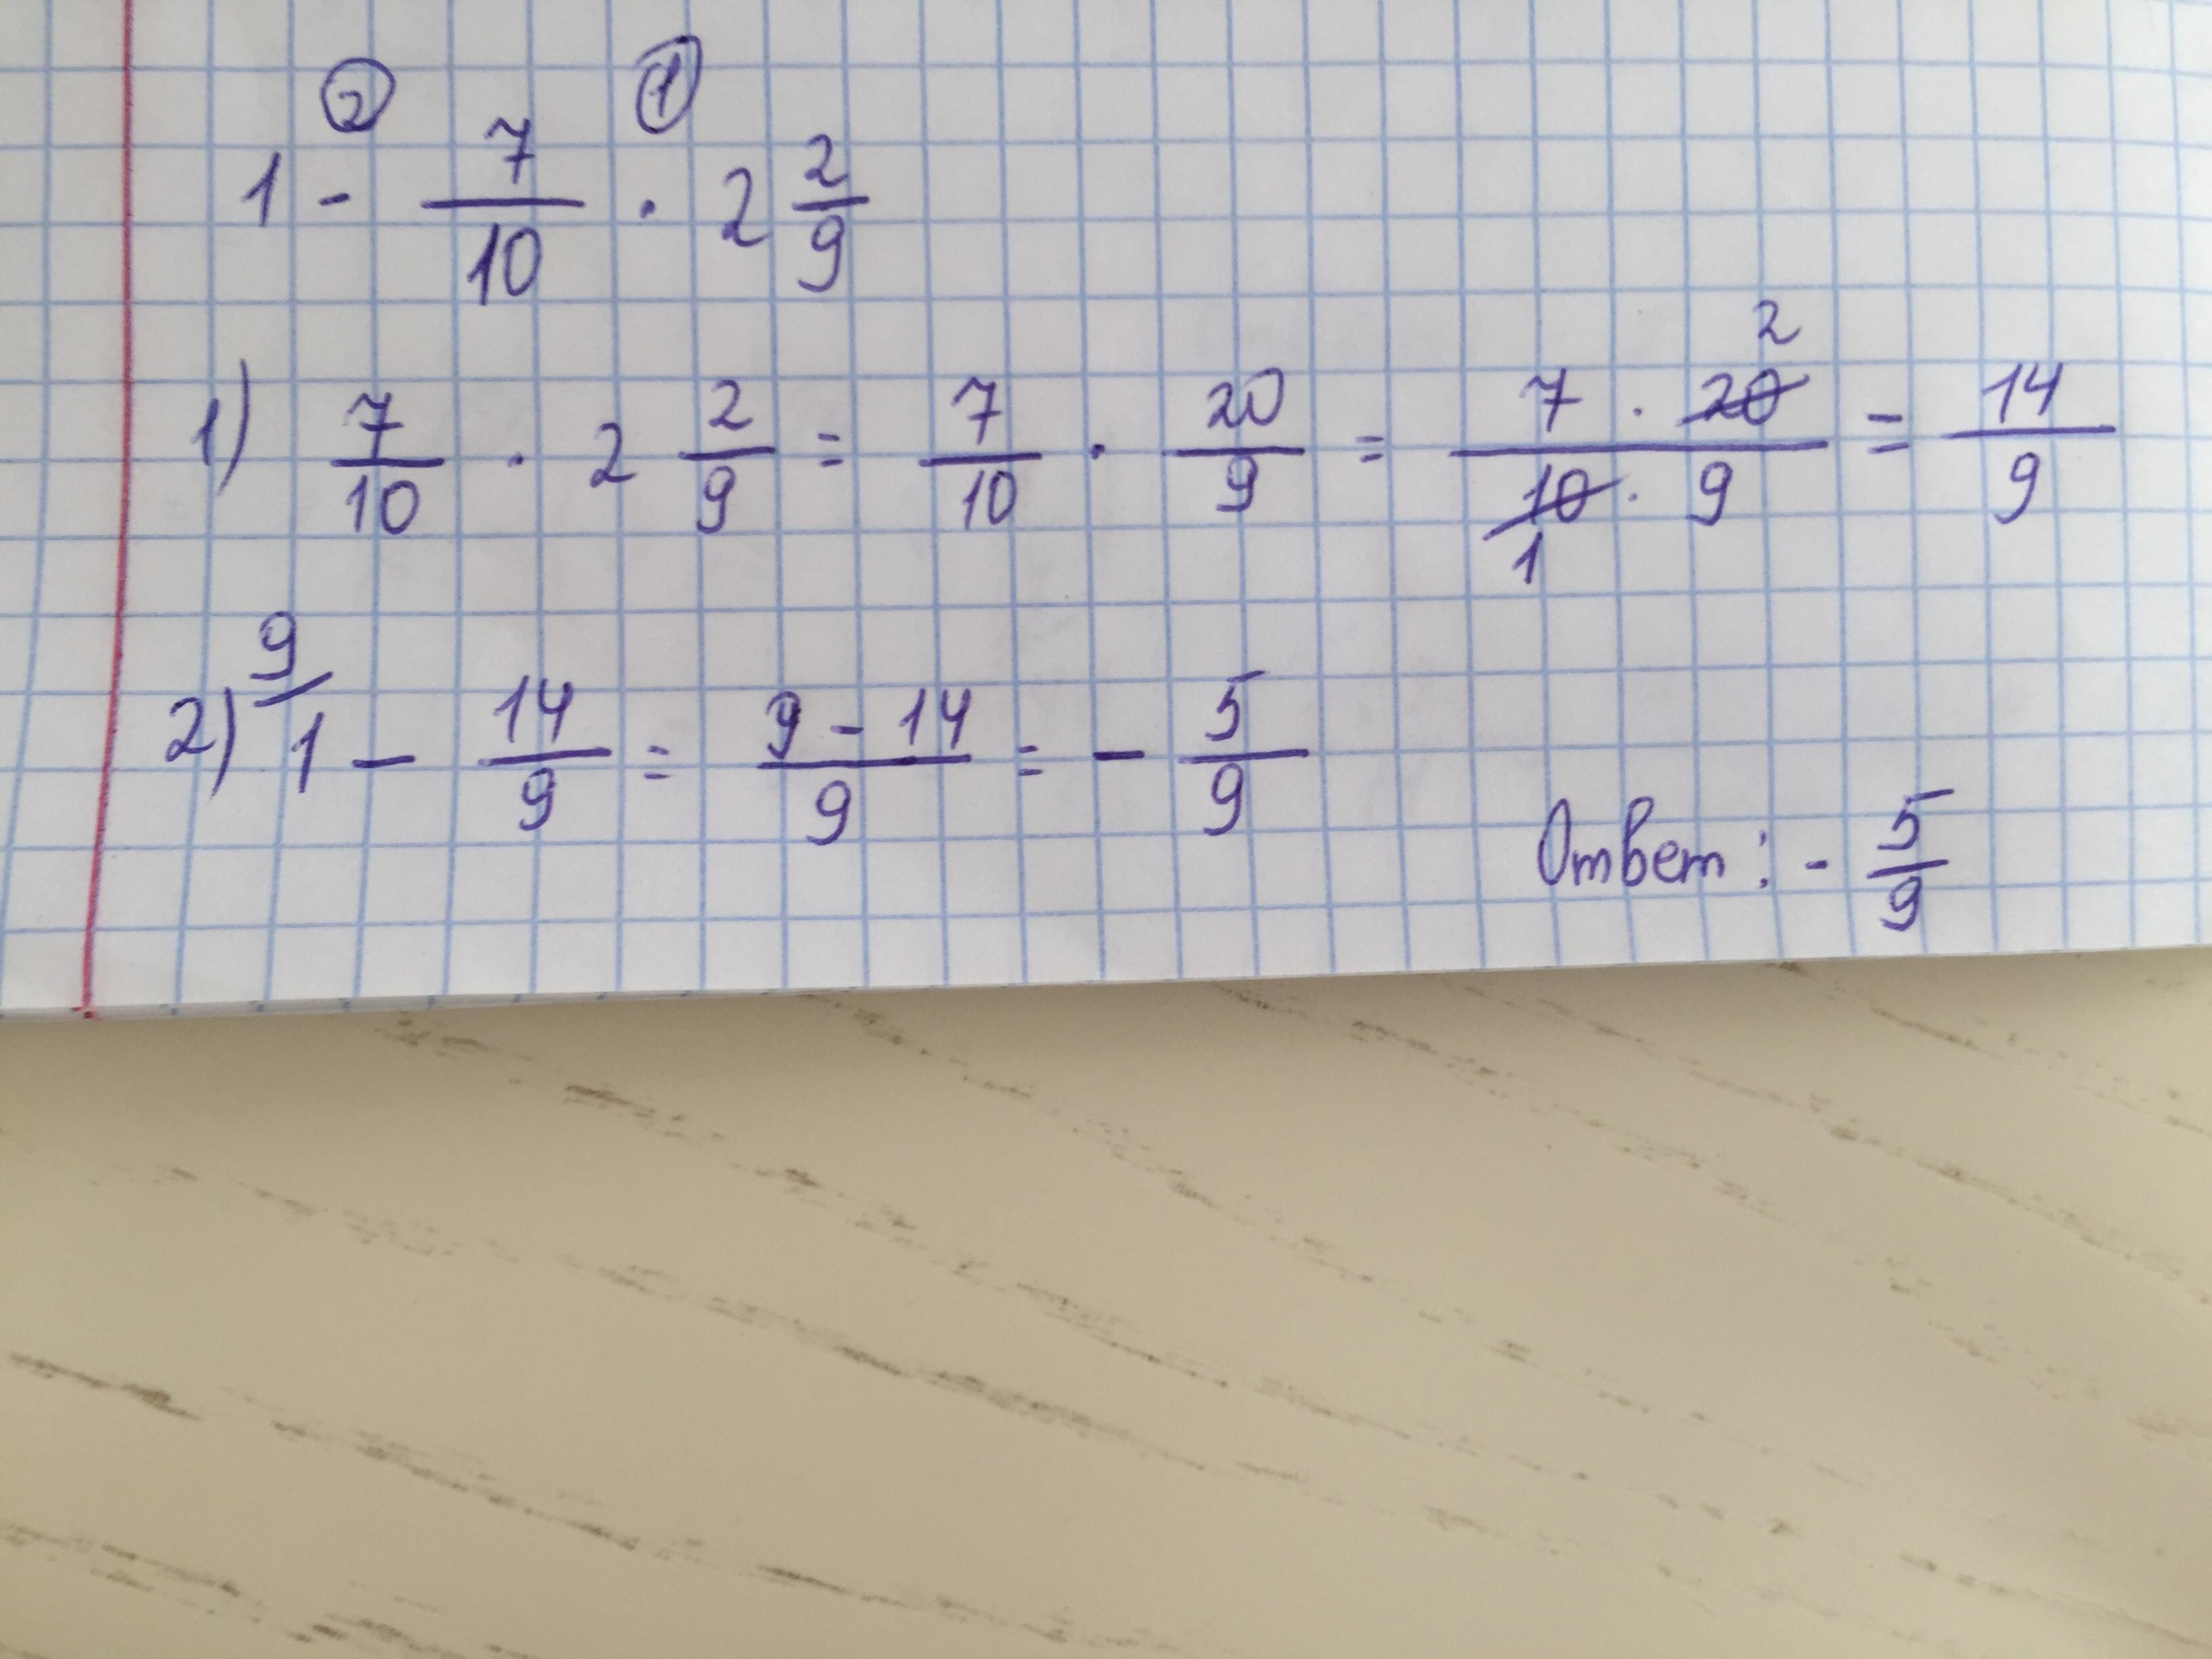 ② ①
1 - 7/10 · 2 2/9
1) 7/10 · 2 2/9 = 7/10 · 20/9 = 7 · 20 2 / 10 1 · 9 = 14/9
2) 9/ 1 - 14/9 = 9 - 14/9 = - 5/9
Ответ: - 5/9